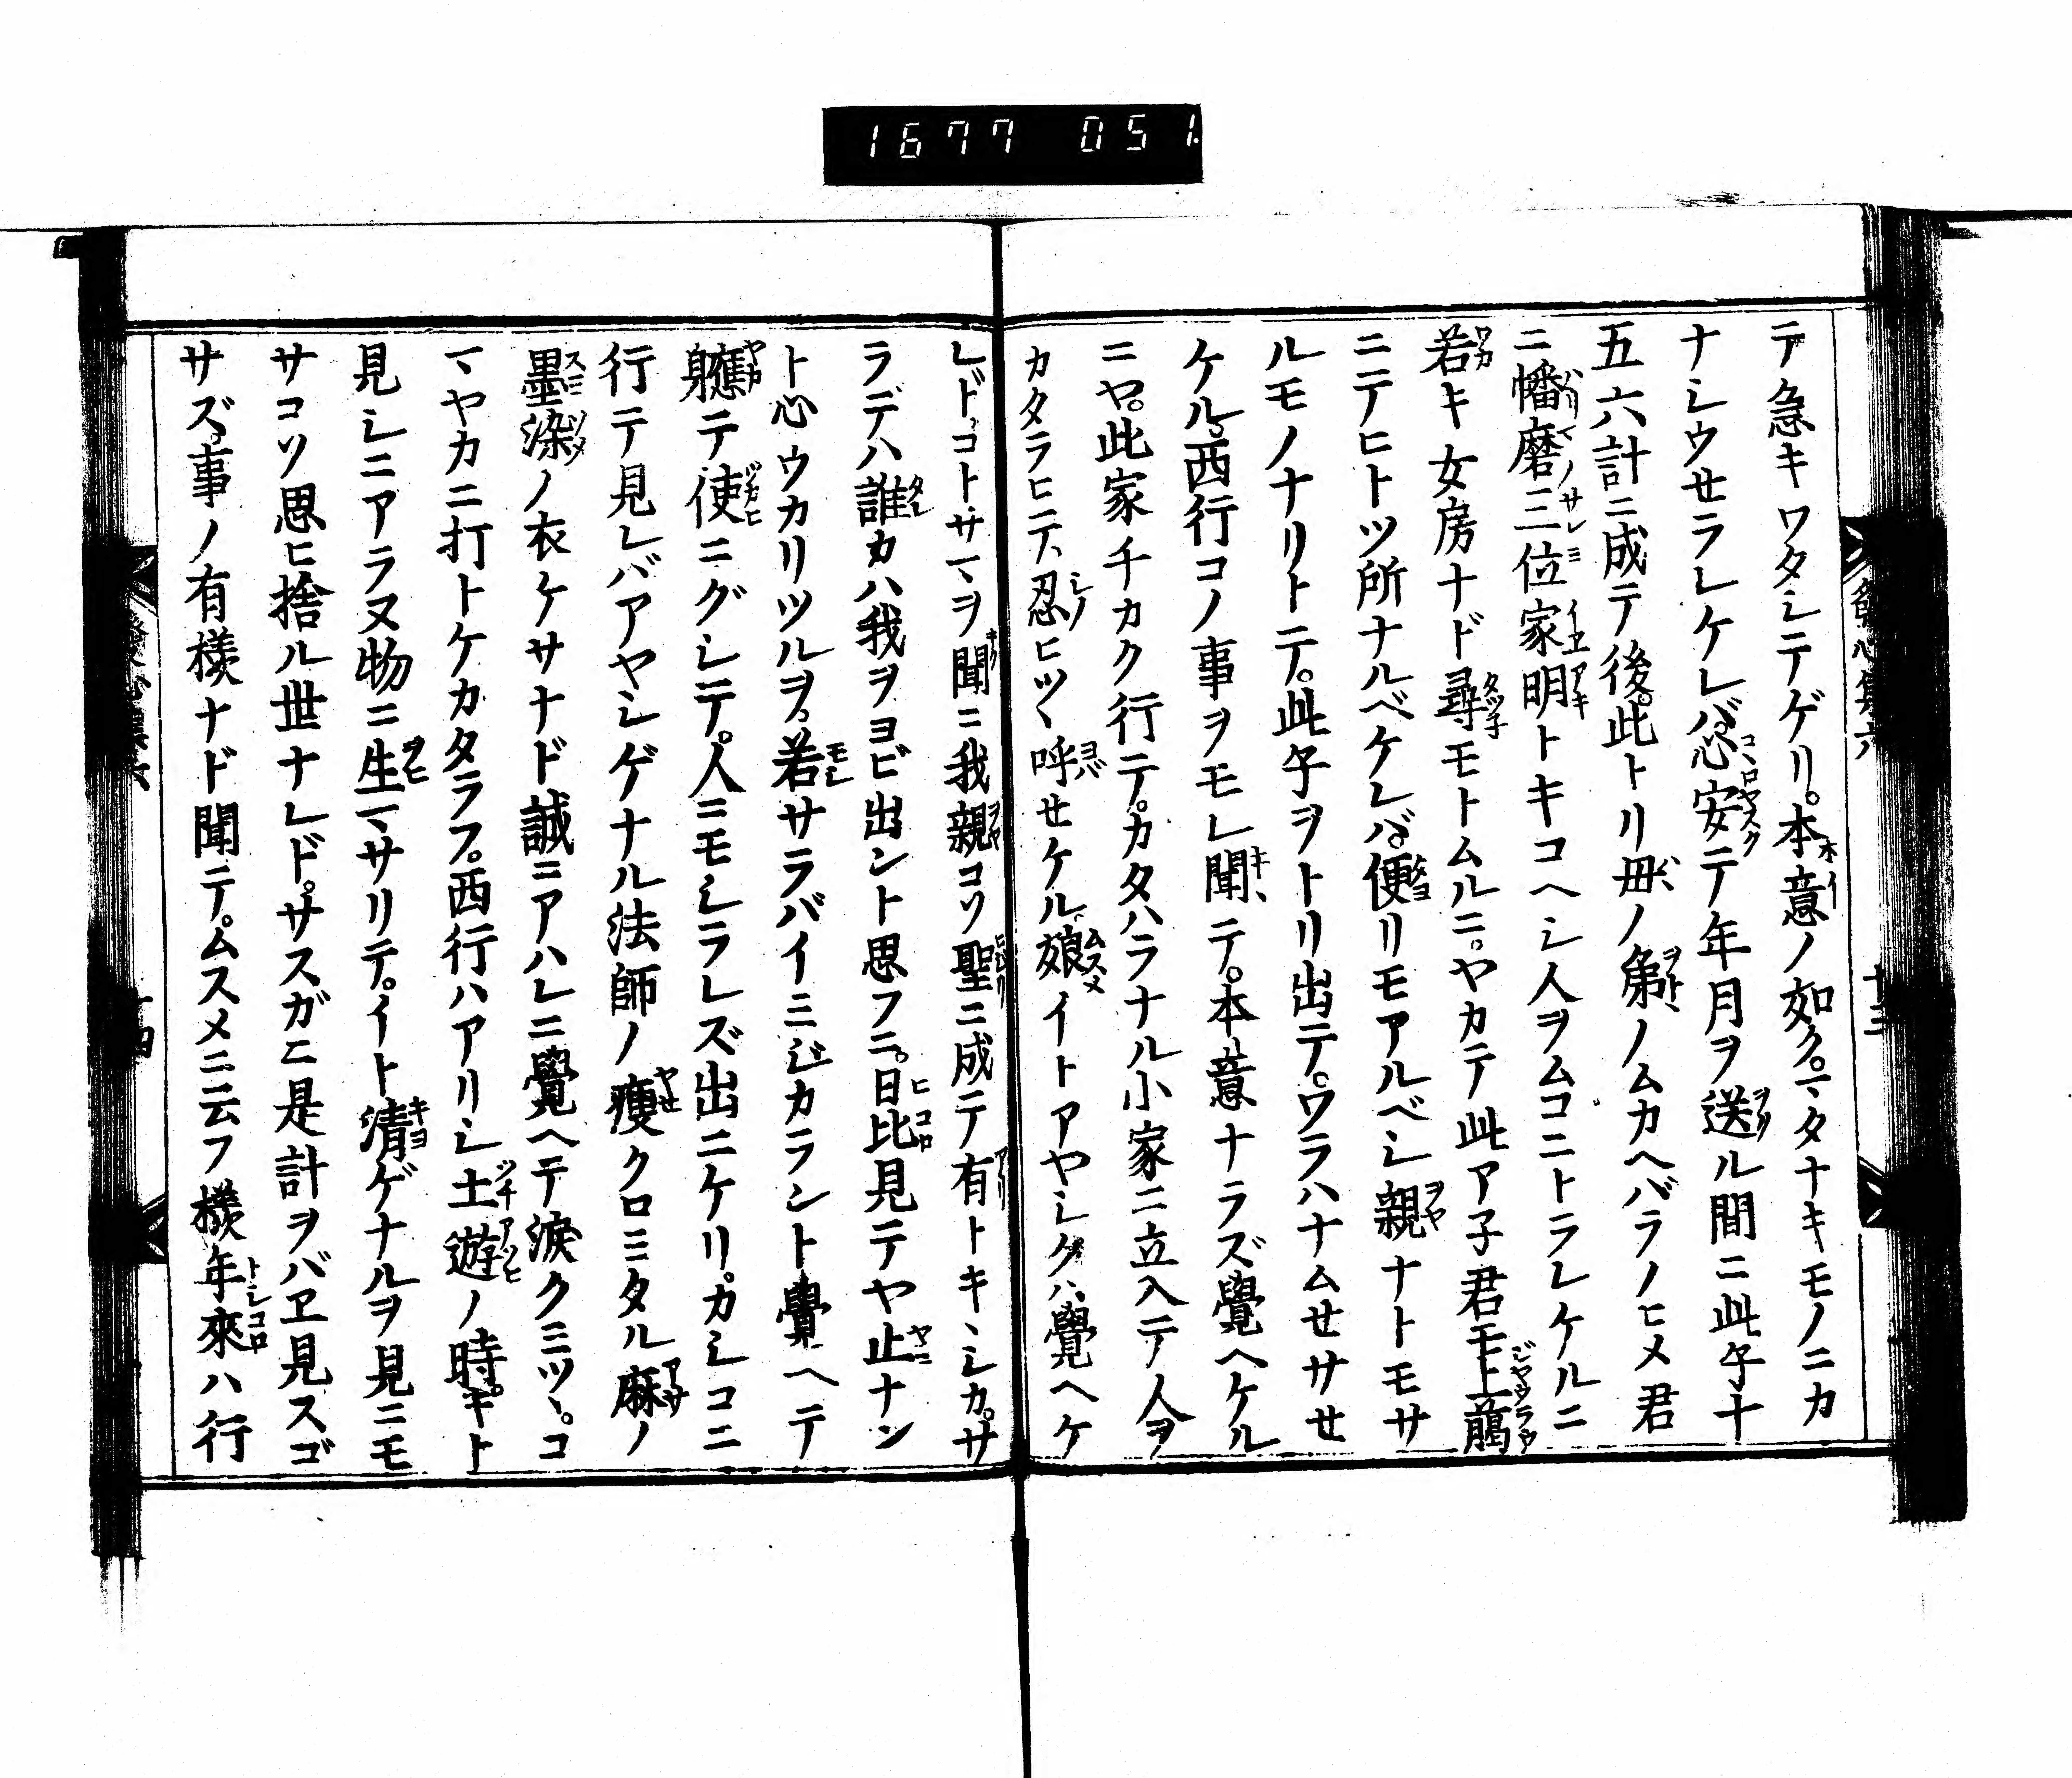 1677 051
テ急キワタシテゲリ。本意ノ如ク。マタナキモノニカ
ナシウセラレケレバ。心安テ年月ヲ送ル間ニ此子十
五六計ニ成テ後。此トリ毋ノ第ノムカヘバラノヒメ君
ニ幡磨三位家明トキコヘシ人ヲムコニトラレケルニ
若キ女房ナド尋モトムルニ。ヤカテ此ア子君モ上臈
ニテヒトツ所ナルベケレバ。便リモアルベシ親ナトモサ
ルモノナリトテ。此子ヲトリ出テ。ワラハナムせサせ
ケル。西行コノ事ヲモレ聞テ。本意ナラズ覺ヘケル
ニヤ。此家チカク行テ。カタハラナル小家ニ立入テ人ヲ
カタラヒテ、忍ヒツヽ呼せケル。娘イトアヤシクハ覺ヘケ
レド。コトサマヲ聞ニ我親コソ聖ニ成テ有トキヽシカ。サ
ラデハ誰カハ我ヲヨビ出ント思フニ。日比見テヤ止ナン
ト心ウカリツルヲ。若サラバイミジカラント覺ヘテ
軈テ使ニグシテ。人ニモシラレズ出ニケリ。カシコニ
行テ見レバアヤシゲナル法師ノ瘦クロミタル麻ノ
墨染ノ衣ケサナド誠ニアハレニ覺ヘテ淚クミツヽ。コ
マヤカニ打トケカタラフ。西行ハアリシ土遊ノ時。キト
見シニアラヌ物ニ生マサリテ。イト清ゲナルヲ見ニモ
サコソ思ヒ捨ル世ナレド。サスガニ是計ヲバヱ見スゴ
サズ。事ノ有樣ナド聞テ。ムスメニ云フ樣年來ハ行